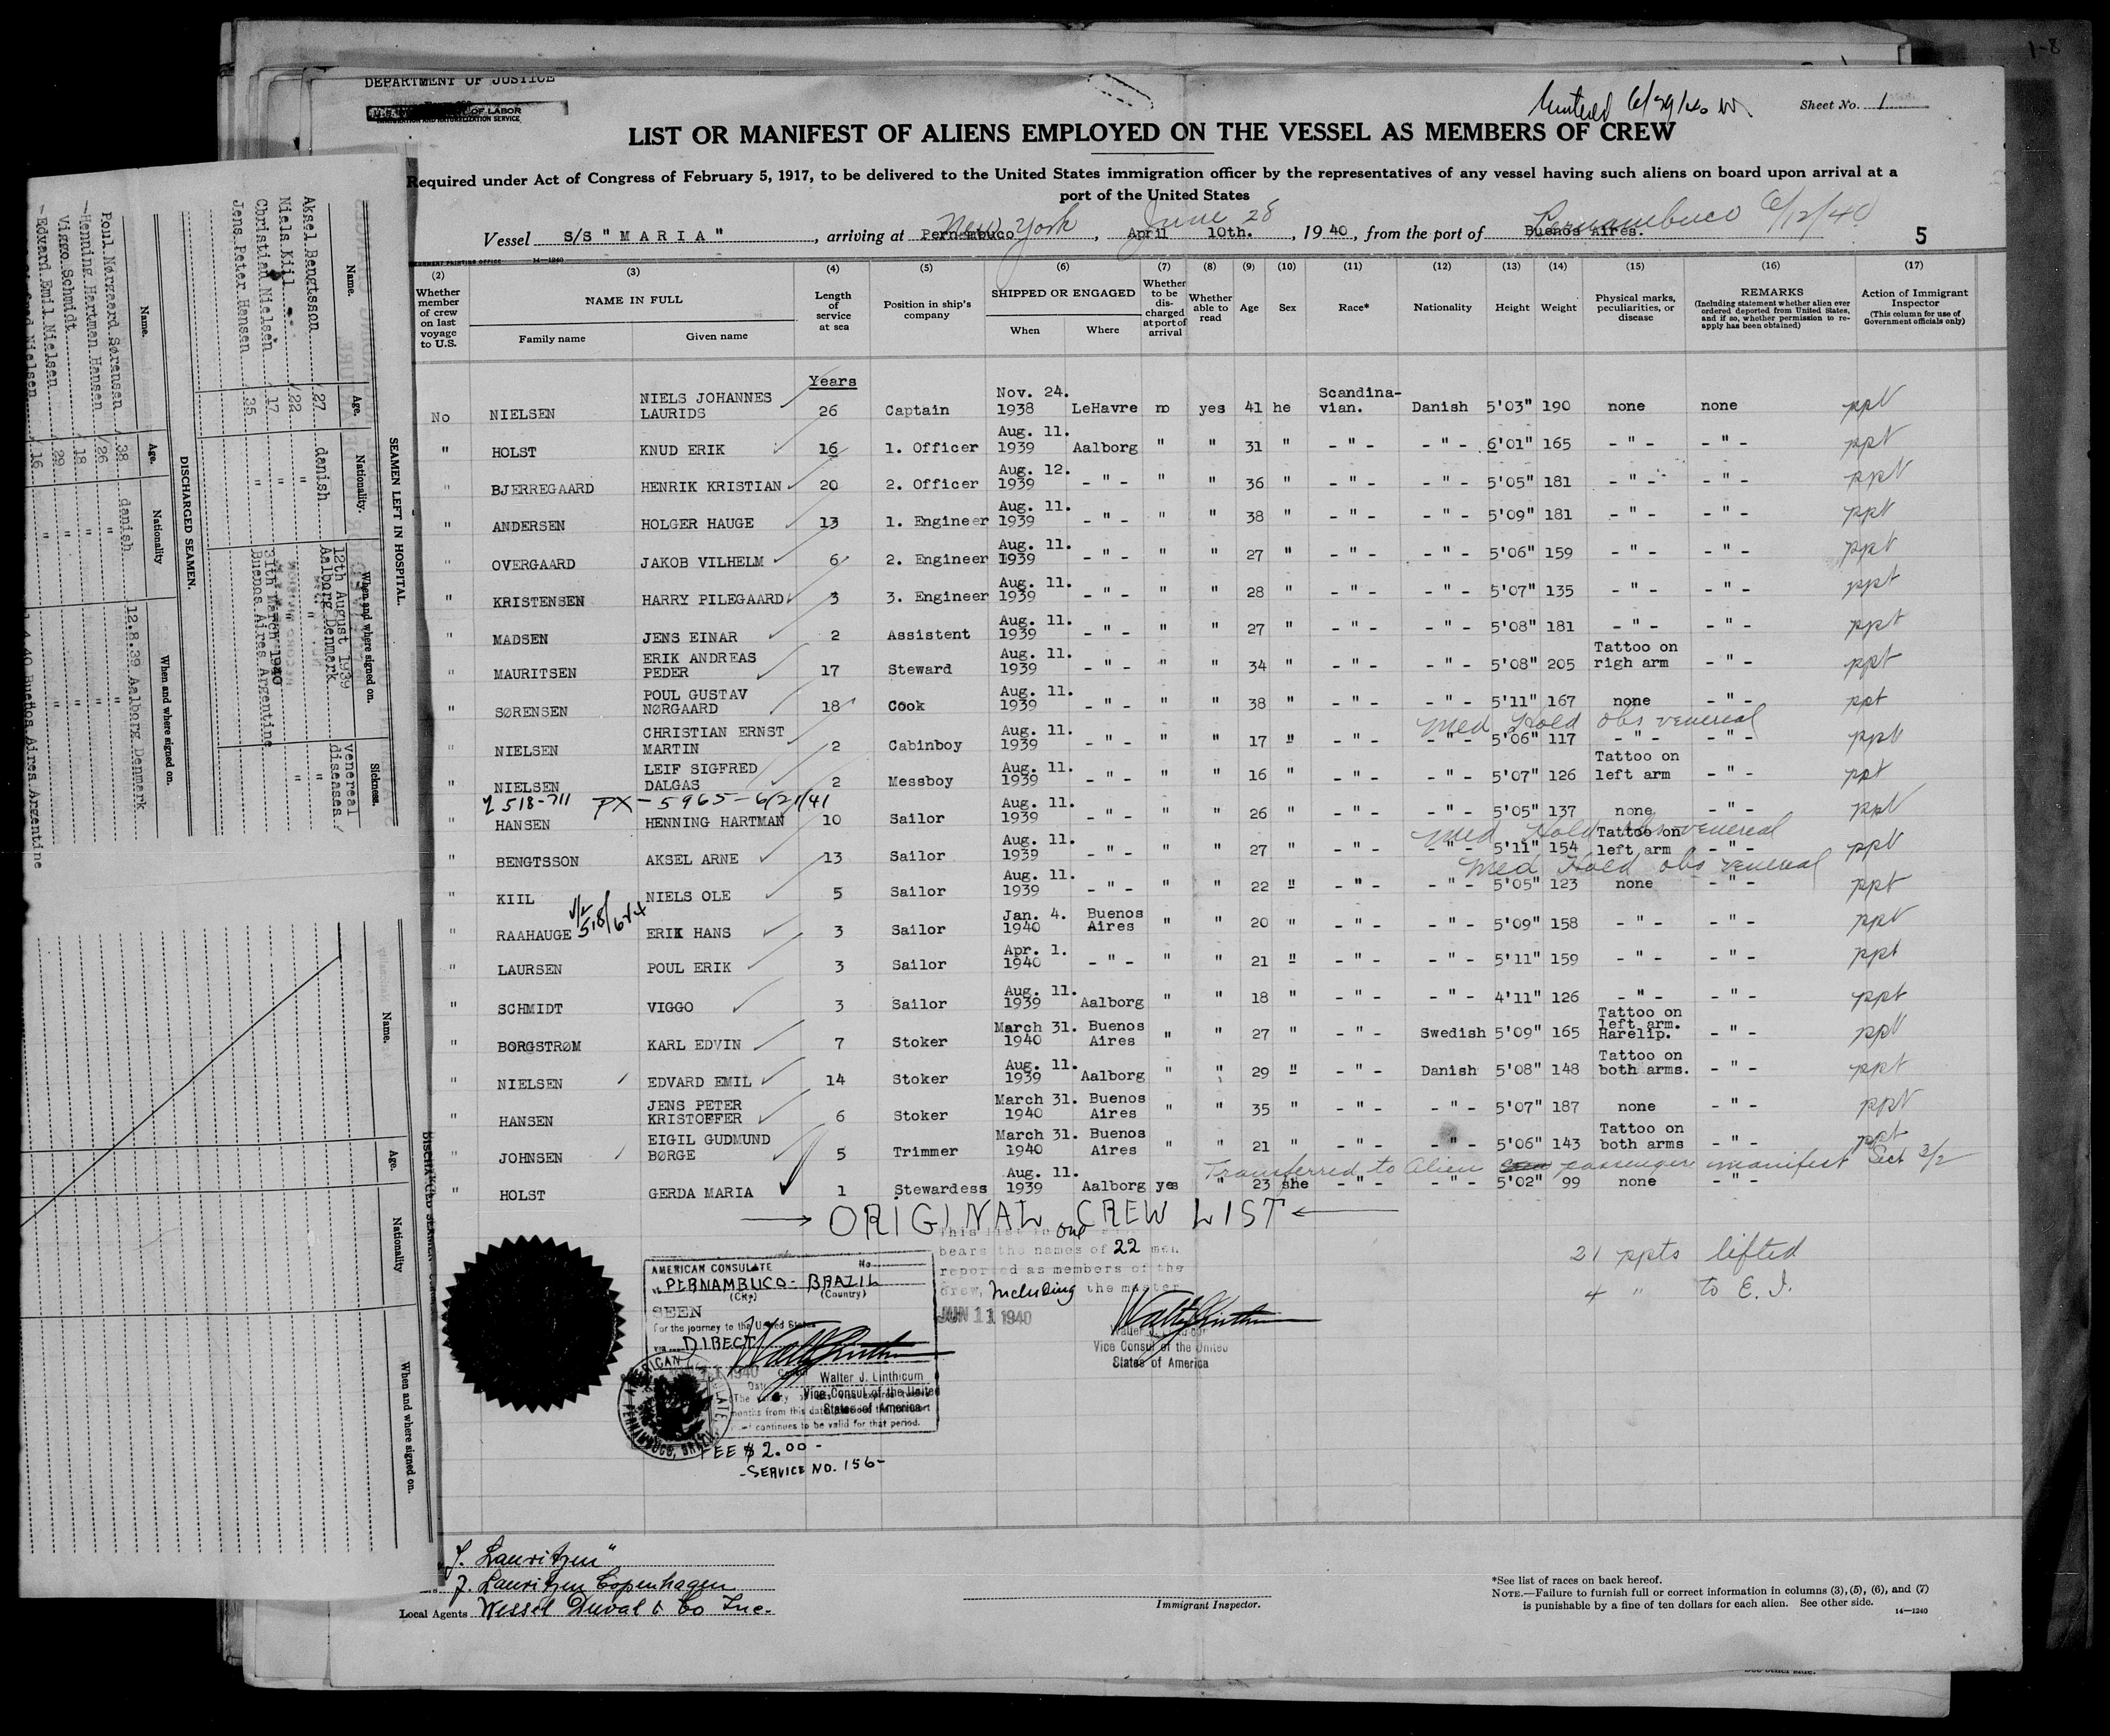 1-8
DEPARTMENT OF JUSTICE
OF LABOR
IMMIGRATION AND NATURALIZATION SERVICE
6/29/40
Sheet No. 1
LIST OR MANIFEST OF ALIENS EMPLOYED ON THE VESSEL AS MEMBERS OF CREW
Required under Act of Congress of February 5, 1917, to be delivered to the United States immigration officer by the representatives of any vessel having such aliens on board upon arrival at a
port of the United States
New York June 28 Pernambuco 6/12/40
Vessel S/S "MARIA", arriving at Pernambuco, April 10th., 1940, from the port of Buenos Aires.
5
GOVERNMENT PRINTING OFFICE 14-1240
(2) (3) (4) (5) (6) (7) (8) (9) (10) (11) (12) (13) (14) (15) (16) (17)
Whether member of crew on last voyage to U.S. NAME IN FULL Family name Given name Length of service at sea Position in ship's company SHIPPED OR ENGAGED When Where Whether to be discharged at port of arrival Whether able to read Age Sex Race* Nationality Height Weight Physical marks, peculiarities, or disease REMARKS (Including statement whether alien ever ordered deported from United States, and if so, whether permission to re-apply has been obtained) Action of Immigrant Inspector (This column for use of Government officials only)
Years
No NIELSEN NIELS JOHANNES LAURIDS 26 Captain Nov. 24. 1938 LeHavre no yes 41 he Scandina-vian. Danish 5'03" 190 none none ppt
" HOLST KNUD ERIK 16 1. Officer Aug. 11. 1939 Aalborg " " 31 " - " - - " - 6'01" 165 - " - - " - ppt
" BJERREGAARD HENRIK KRISTIAN 20 2. Officer Aug. 12. 1939 - " - " " 36 " - " - - " - 5'05" 181 - " - - " - ppt
" ANDERSEN HOLGER HAUGE 13 1. Engineer Aug. 11. 1939 - " - " " 38 " - " - - " - 5'09" 181 - " - - " - ppt
" OVERGAARD JAKOB VILHELM 6 2. Engineer Aug. 11. 1939 - " - " " 27 " - " - - " - 5'06" 159 - " - - " - ppt
" KRISTENSEN HARRY PILEGAARD 3 3. Engineer Aug. 11. 1939 - " - " " 28 " - " - - " - 5'07" 135 - " - - " - ppt
" MADSEN JENS EINAR 2 Assistent Aug. 11. 1939 - " - " " 27 " - " - - " - 5'08" 181 - " - - " - ppt
" MAURITSEN ERIK ANDREAS PEDER 17 Steward Aug. 11. 1939 - " - " " 34 " - " - - " - 5'08" 205 Tattoo on righ arm - " - ppt
" SØRENSEN POUL GUSTAV NØRGAARD 18 Cook Aug. 11. 1939 - " - " " 38 " - " - - " - 5'11" 167 none - " - ppt
Med Hold obs venereal
" NIELSEN CHRISTIAN ERNST MARTIN 2 Cabinboy Aug. 11. 1939 - " - " " 17 " - " - - " - 5'06" 117 - " - - " - ppt
" NIELSEN LEIF SIGFRED DALGAS 2 Messboy Aug. 11. 1939 - " - " " 16 " - " - - " - 5'07" 126 Tattoo on left arm - " - ppt
518-711 PX-5965-6/21/41
" HANSEN HENNING HARTMAN 10 Sailor Aug. 11. 1939 - " - " " 26 " - " - - " - 5'05" 137 none - " - ppt
Med Hold obs venereal
" BENGTSSON AKSEL ARNE 13 Sailor Aug. 11. 1939 - " - " " 27 " - " - - " - 5'11" 154 Tattoo on left arm - " - ppt
Med Hold obs venereal
" KIIL NIELS OLE 5 Sailor Aug. 11. 1939 - " - " " 22 " - " - - " - 5'05" 123 none - " - ppt
" RAAHAUGE ERIK HANS 3 Sailor Jan. 4. 1940 Buenos Aires " " 20 " - " - - " - 5'09" 158 - " - - " - ppt
" LAURSEN POUL ERIK 3 Sailor Apr. 1. 1940 - " - " " 21 " - " - - " - 5'11" 159 - " - - " - ppt
" SCHMIDT VIGGO 3 Sailor Aug. 11. 1939 Aalborg " " 18 " - " - - " - 4'11" 126 - " - - " - ppt
" BORGSTRØM KARL EDVIN 7 Stoker March 31. 1940 Buenos Aires " " 27 " - " - Swedish 5'09" 165 Tattoo on left arm. Harelip. - " - ppt
" NIELSEN EDVARD EMIL 14 Stoker Aug. 11. 1939 Aalborg " " 29 " - " - Danish 5'08" 148 Tattoo on both arms. - " - ppt
" HANSEN JENS PETER KRISTOFFER 6 Stoker March 31. 1940 Buenos Aires " " 35 " - " - - " - 5'07" 187 none - " - ppt
" JOHNSEN EIGIL GUDMUND BØRGE 5 Trimmer March 31. 1940 Buenos Aires " " 21 " - " - - " - 5'06" 143 Tattoo on both arms - " - ppt
Transferred to Alien passenger manifest Sect 3/2
" HOLST GERDA MARIA 1 Stewardess Aug. 11. 1939 Aalborg yes " 23 she - " - - " - 5'02" 99 none - " -
ORIGINAL CREW LIST
This list is one
bears the names of 22 men
reported as members of the
crew, including the master
JUN 11 1940
Walter J. Linthicum
Vice Consul of the United
States of America
21 ppts lifted
4 " to E. I.
AMERICAN CONSULATE No
PERNAMBUCO - BRAZIL
(City) (Country)
SEEN
for the journey to the United States
via DIRECT
1940
Date
Walter J. Linthicum
Vice Consul of the United
States of America
months from this date
continues to be valid for that period.
AMERICAN CONSULATE
PERNAMBUCO, BRAZIL
FEE $2.00-
-SERVICE NO. 156-
J. Lauritzen"
J. Lauritzen Copenhagen
Local Agents Wessel Duval & Co Inc.
Immigrant Inspector.
*See list of races on back hereof.
NOTE.—Failure to furnish full or correct information in columns (3), (5), (6), and (7)
is punishable by a fine of ten dollars for each alien. See other side.
14-1240
See other side.
SEAMEN LEFT IN HOSPITAL.
Name. Age. Nationality. When and where signed on. Sickness.
Aksel Bengtsson 27 danish 12th August 1939 Aalborg Denmark venereal diseases
Niels Kiil 22 " " "
Christian Nielsen 17 "
Jens Peter Hansen 35 " 31th March 1940 Buenos Aires Argentine
DISCHARGED SEAMEN.
Name. Age. Nationality When and where signed on.
Poul Nørgaard Sørensen 38 danish 12.8.39 Aalborg Denmark
Henning Hartman Hansen 26 " "
Viggo Schmidt 18 " "
Edvard Emil Nielsen 29 " "
Nielsen 16 " "
1.4.40 Buenos Aires Argentine
DISCHARGED SEAMEN
Name. Age. Nationality When and where signed on.